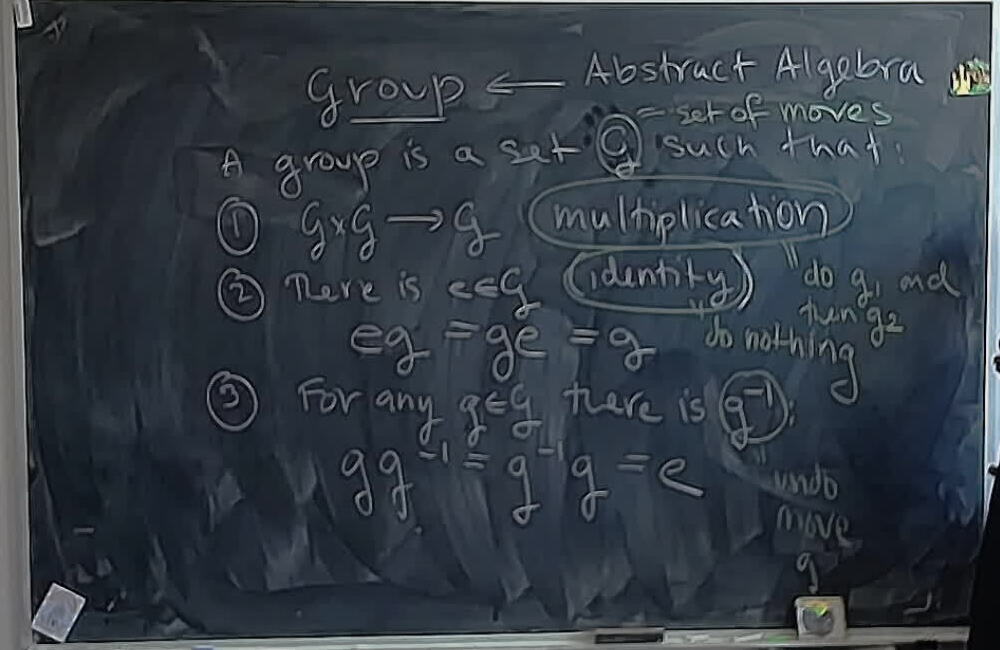 Group ← Abstract Algebra
= set of moves
A group is a set G such that:
① G×G → G (multiplication)
② There is e∈G (identity)
" do g₁ and
then g₂
eg = ge = g
" do nothing
③ For any g∈G there is g⁻¹:
gg⁻¹ = g⁻¹g = e
" undo
move
g